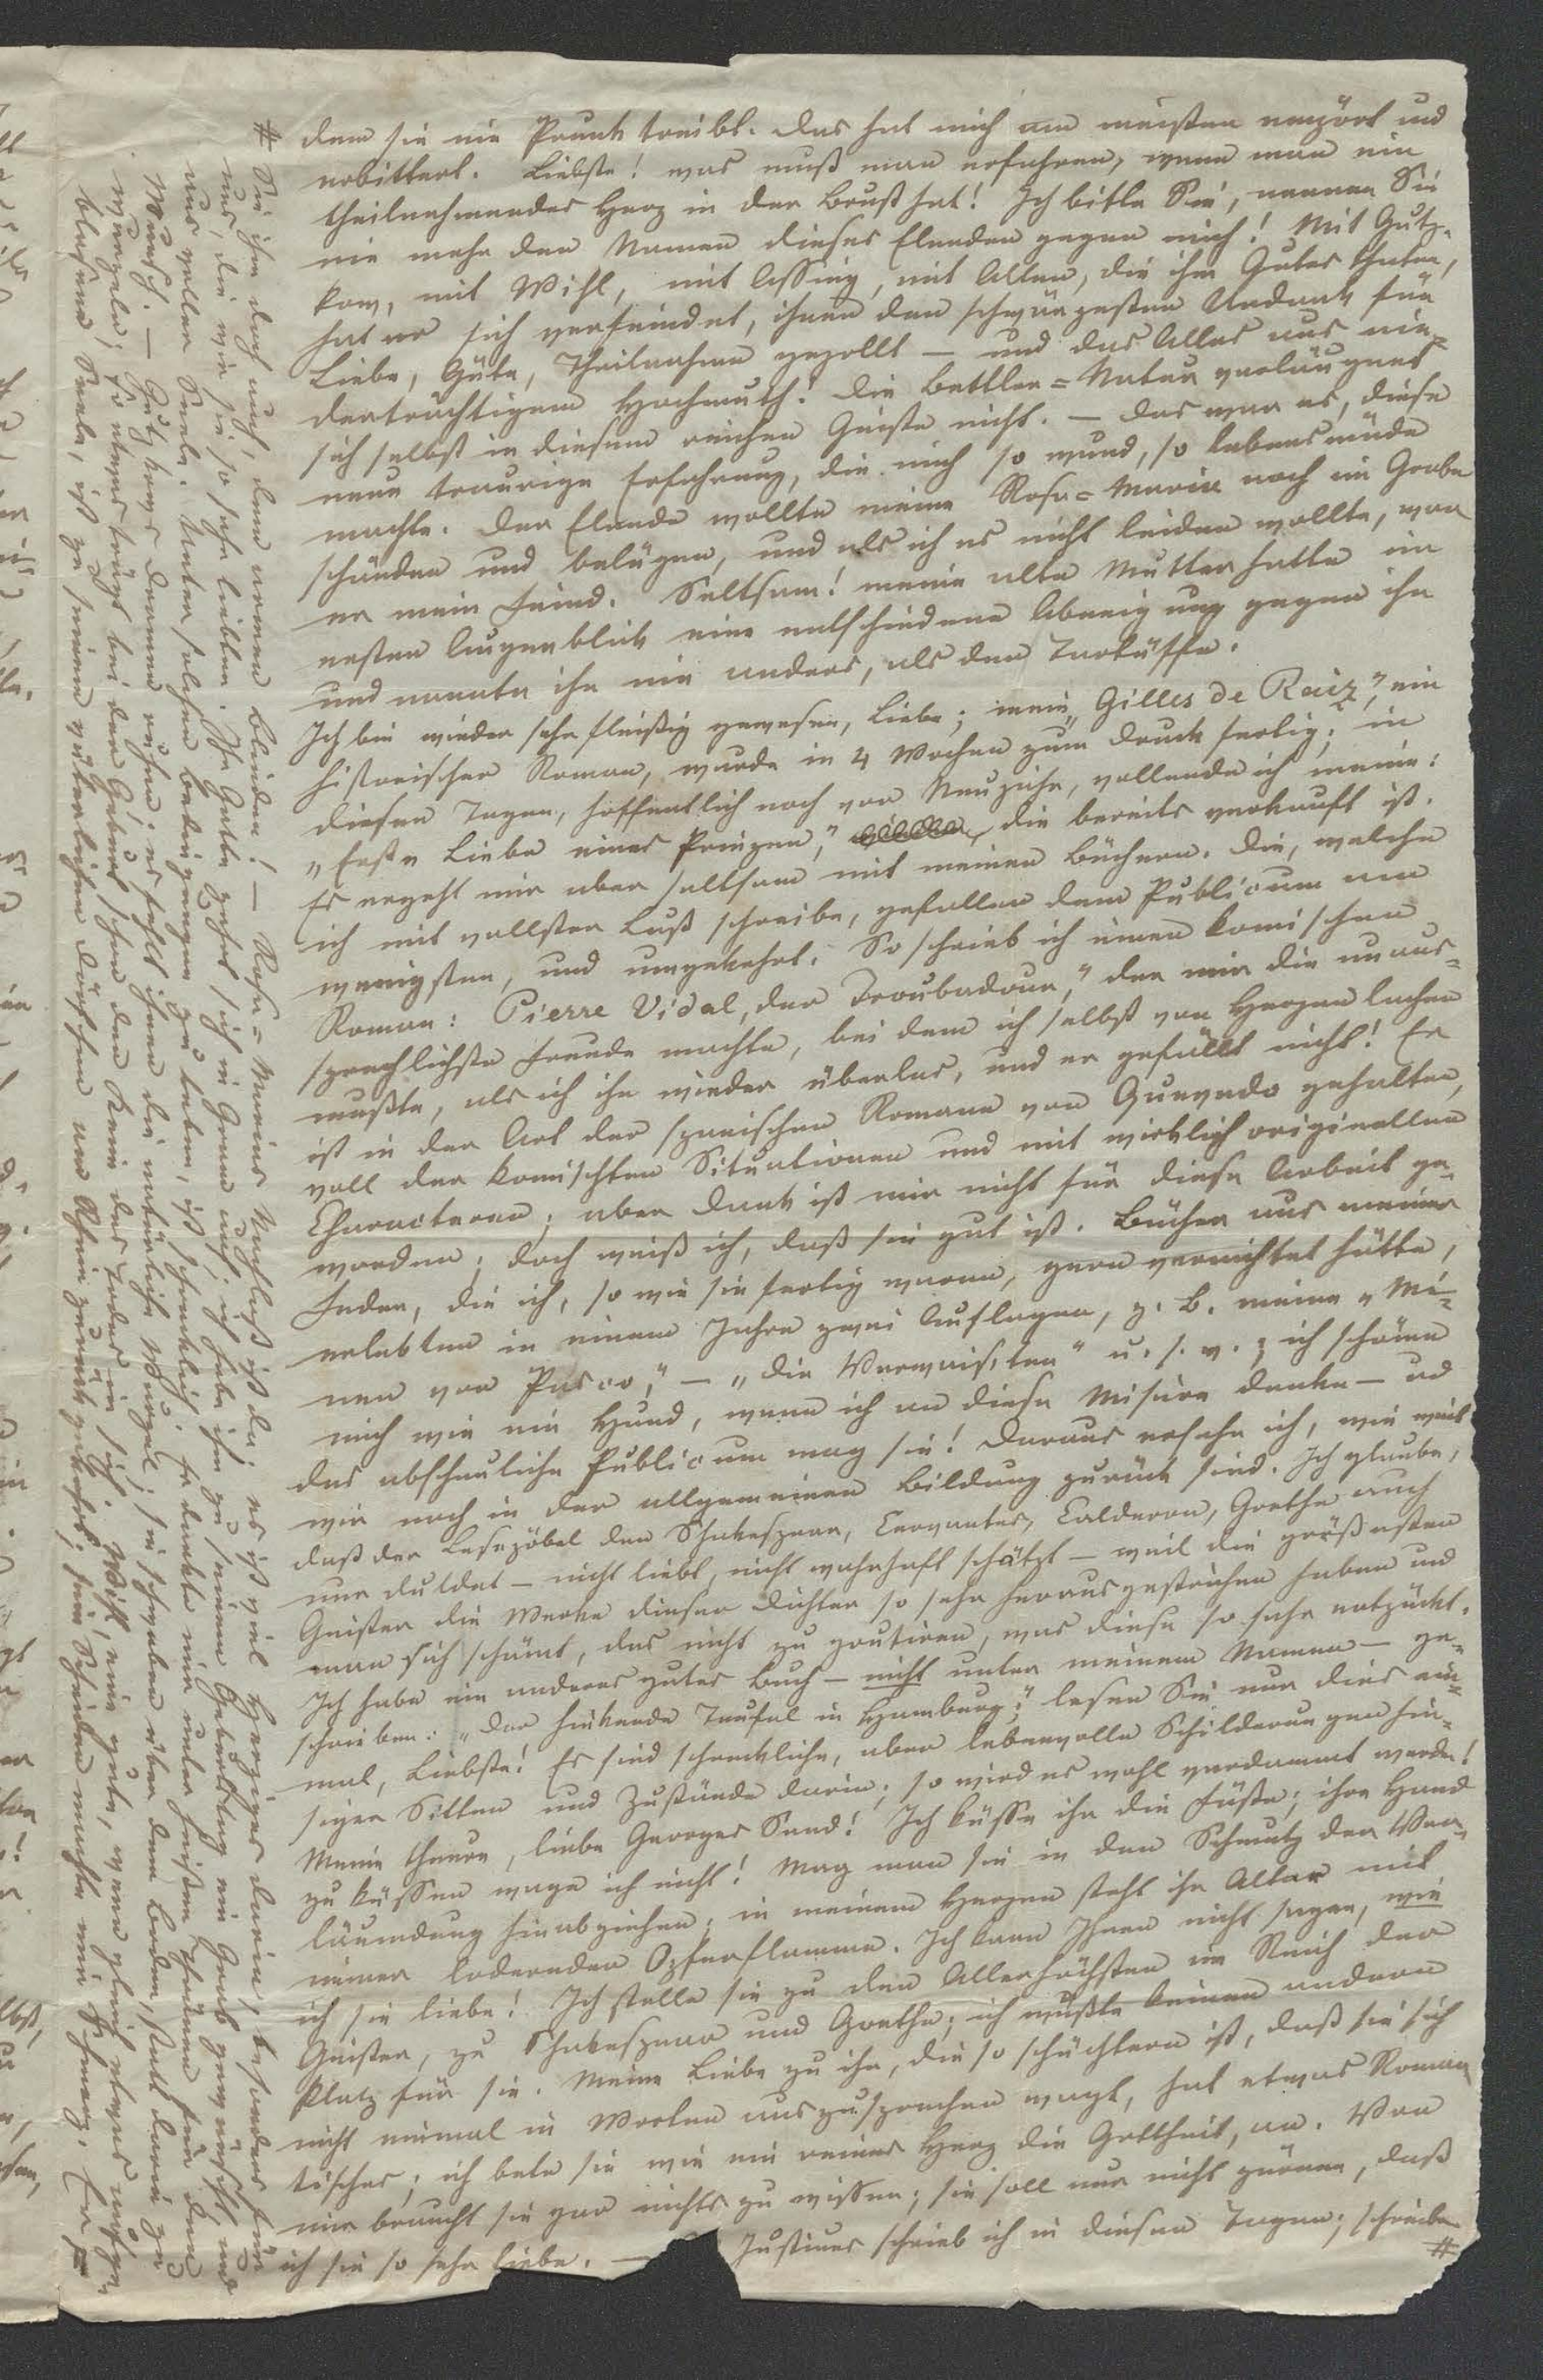 dem sie nie Prunk treibt. Das hat mich am meisten empört und
erbittert. Liebste! was muß man erfahren, wenn man ein
theilnehmendes Herz in der Brust hat! Ich bitte Sie, nennen Sie
nie mehr den Namen dieses Elenden gegen mich! Mit Gutz-
kow, mit Wihl, mit Assing, mit Allen, die ihm Gutes thaten,
hat er sich verfeindet, ihnen den schwärzesten Undank für
Liebe, Güte, Theilnahme gezollt — und das Alles aus nie-
derträchtigem Hochmuth! Die Bettler=Natur verläugnet
sich selbst in diesem reichen Geiste nicht. — Das war es, diese
neue traurige Erfahrung, die mich so wund, so lebensmüde
machte. Der Elende wollte meine Rosa=Maria noch im Grabe
schänden und belügen, und als ich es nicht leiden wollte, war
er mein Feind. Seltsam! meine alte Mutter hatte im
ersten Augenblick eine entschiedene Abneigung gegen ihn
und nannte ihn nie anders, als den Tartüffe.
Ich bin wieder sehr fleißig gewesen, Liebe; mein „Gilles de Raiz", ein
historischer Roman, wurde in 4 Wochen zum Druck fertig; in
diesen Tagen, hoffentlich noch vor Neujahr, vollende ich meine:
„Erste Liebe eines Prinzen," die bereits verkauft ist.
Es ergeht mir aber seltsam mit meinen Büchern. Die, welche
ich mit vollster Lust schreibe, gefallen dem Publicum am
wenigsten, und umgekehrt. So schrieb ich einen komischen
Roman: Pierre Vidal, der Troubadour," der mir die unaus-
sprechlichste Freude machte, bei dem ich selbst von Herzen lachen
mußte, als ich ihn wieder überlas, und er gefällt nicht! Er
ist in der Art der spanischen Romane von Quevedo gehalten,
voll der komischten Situationen und mit wirklich originellen
Characteren; aber Dank ist mir nicht für diese Arbeit ge-
worden; doch weiß ich, daß sie gut ist. Bücher aus meiner
Feder, die ich, so wie sie fertig waren, gern vernichtet hätte,
erlebten in einem Jahre zwei Auflagen, z. B. meine „Mi-
nen von Pasco," — „die Verwais'ten" u. s. w.; ich schäme
mich wie ein Hund, wenn ich an diese Misère denke — und
das abscheuliche Publicum mag sie! Daraus ersehe ich, wie weit
wir noch in der allgemeinen Bildung zurück sind. Ich glaube,
daß der Lesepöbel den Shakespear, Cervantes, Calderon, Goethe auch
nur duldet — nicht liebt, nicht wahrhaft schätzt — weil die größesten
Geister die Werke dieser Dichter so sehr herausgestrichen haben und
man sich schämt, das nicht zu goutiren, was diese so sehr entzückt.
Ich habe ein anderes gutes Buch — nicht unter meinem Namen — ge-
schrieben: „Der hinkende Teufel in Hamburg;" lesen Sie nur dies ein-
mal, Liebste! Es sind schreckliche, aber lebenvolle Schilderungen hie-
siger Sitten und Zustände darin; so wird es wohl verdammt werden!
Meine theure, liebe Georges Sand! Ich küsse ihr die Füße; ihre Hand
zu küssen wage ich nicht! Mag man sie in den Schmutz der Ver-
läumdung hinabziehen; in meinem Herzen steht ihr Altar mit
einer lodernden Opferflamme. Ich kann Ihnen nicht sagen, wie
ich sie liebe! Ich stelle sie zu den Allerhöchsten im Reich der
Geister, zu Shakespear und Goethe; ich wüßte keinen andern
Platz für sie. Meine Liebe zu ihr, die so schüchtern ist, daß sie sich
nicht einmal in Worten auszusprechen wagt, hat etwas Roman-
tisches; ich bete sie wie ein reines Herz die Gottheit, an. Von
mir braucht sie gar nichts zu wissen; sie soll nur nicht zürnen, daß
ich sie so sehr liebe. — Justinus schrieb ich in diesen Tagen; schreiben
#
# Sie ihm doch auch, dem armen Blinden! — Rosa=Maria's Nachlaß ist da; es ist viel Herziges darin, besonders für
uns, die wir sie so sehr liebten. Ihr Gatte zehrt sich in Gram auf; ich habe ihm zu seinem Geburtstag ein Grab gewünscht und
aus voller Seele. Unter solchen Bedingungen zu leben, ist schrecklich. Er dankte mir unter heißen Thränen für den
Wunsch. — Gutzkows Dramen ruhen; es fehlt ihnen die natürliche Wurzel; sie schweben über dem Boden, statt darin zu
wurzeln; so etwas trägt bei der Geburt schon den Keim des Todes in sich. Wihl, eine gute, wenn gleich etwas aufge-
blasene Seele, ist zu seinen väterlichen Dörfern am Rhein zurückgekehrt; sein Scheiden machte mir Schmerz. Er